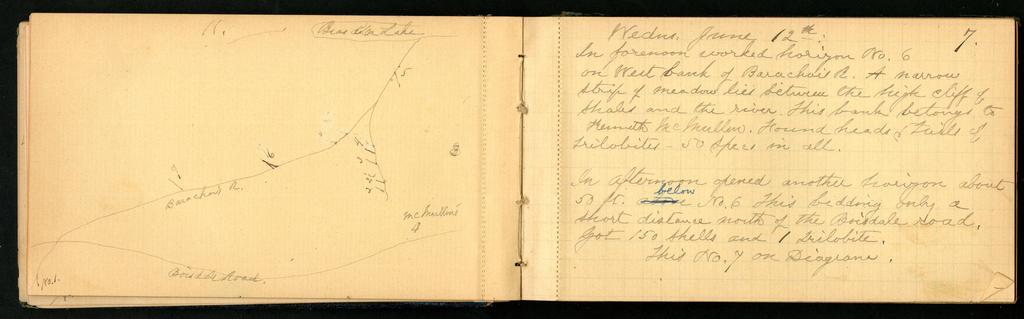 Bras d'Or Lake
5
6
7
Barachois R.
McMullin's
4
No. 1.
Boisdale Road.
Wednes. June 12th: 7.
In forenoon worked horizon No. 6
on West bank of Barachois R. A narrow
strip of meadow lies between the high cliff of
shales and the river. This bank belongs to
Kenneth McMullin. Found heads & tails of
Trilobites - 50 specs in all.
In afternoon opened another horizon about
50 ft. below No. 6 This bedding only a
short distance north of the Boisdale road.
Got 150 shells and 1 Trilobite.
This No. 7 on Diagram.